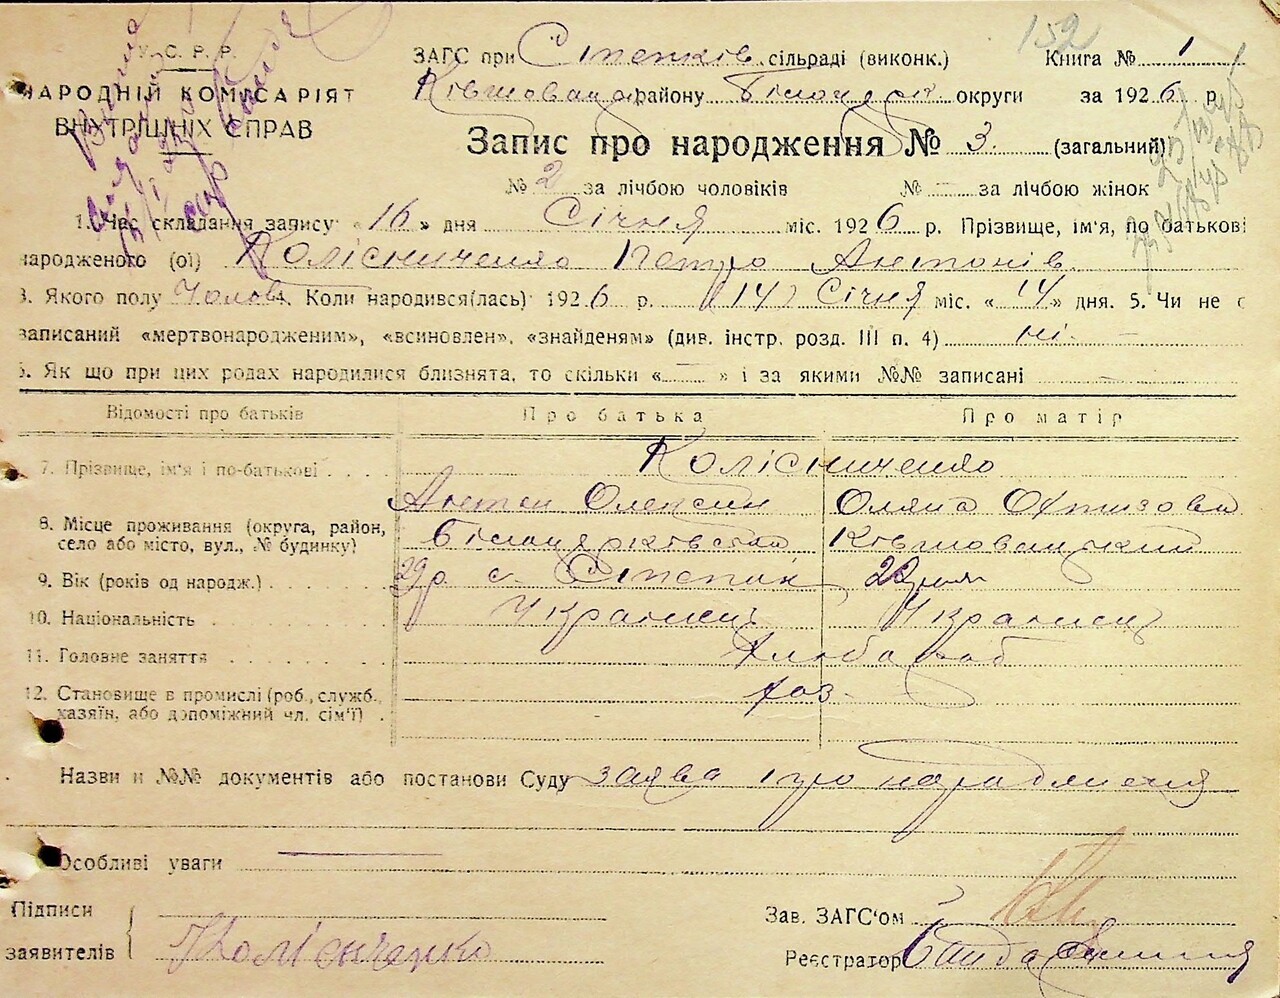 152
У. С. Р. Р.
НАРОДНІЙ КОМІСАРІЯТ
ВНУТРІШНІХ СПРАВ
ЗАГС при Сіпенків сільраді (виконк.) Книга № 1
Ківшовацьк. району Білоцерк округи за 1926 р.
Запис про народження № 3. (загальний)
№ 2 за лічбою чоловіків № — за лічбою жінок
1. Час складання запису: «16» дня Січня міс. 1926 р. Прізвище, ім'я, по батькові
народженого (ої) Колісниченко Петро Антонів
3. Якого полу Чолов 4. Коли народився(лась) 1926 р. (14) Січня міс. «14» дня. 5. Чи не є
записаний «мертвонародженим», «всиновлен», «знайденям» (див. інстр. розд. III п. 4) ні. —
6. Як що при цих родах народилися близнята, то скільки «—» і за якими №№ записані —
Відомості про батьків Про батька Про матір
7. Прізвище, ім'я і по-батькові Колісниченко
Антон Олексин Оляна
8. Місце проживання (округа, район, село або місто, вул., № будинку) Білоцерківська Ківшовацький
9. Вік (років од народж.) 29 р с. Сіпепки
10. Національність Українець Українець
11. Головне заняття Хлібороб
12. Становище в промислі (роб., служб., хазяїн, або допоміжний чл. сім'ї) хоз.
Назви и №№ документів або постанови Суду заява про народженя
Особливі уваги —
Підписи
заявителів Колісніченко
Зав. ЗАГС'ом
Реєстратор